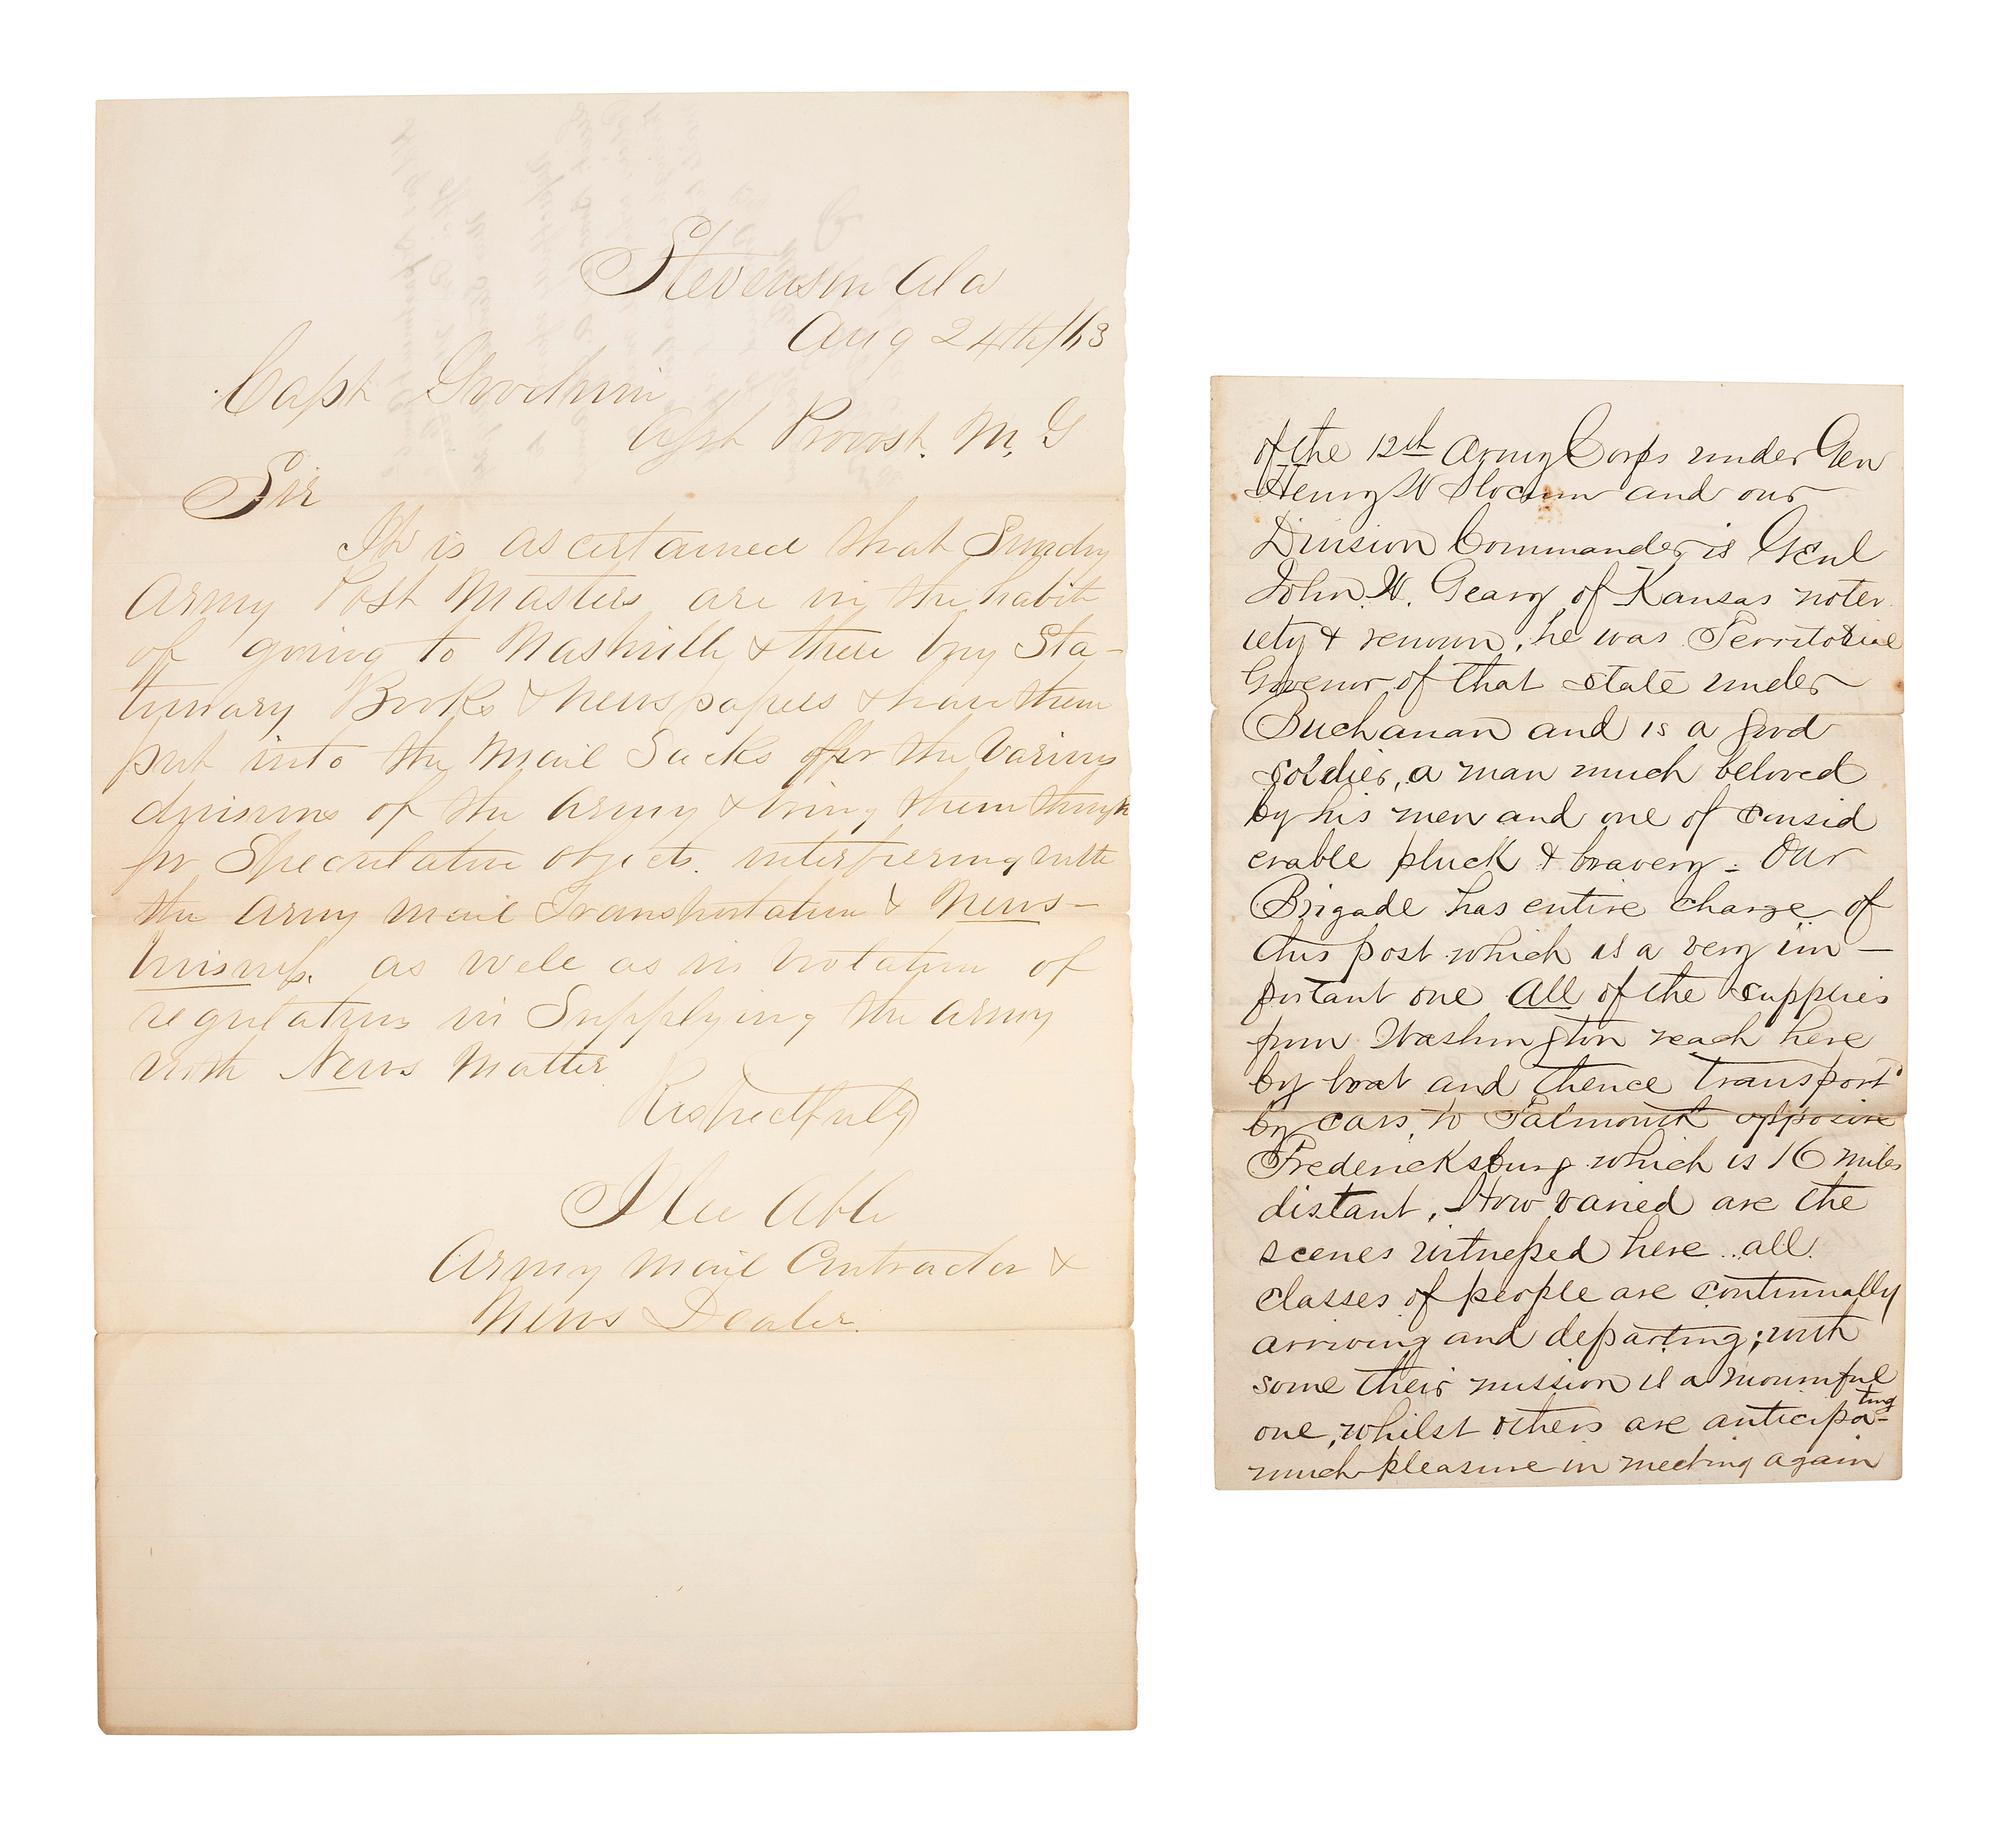 Stevenson Ala
Aug 24th/63
Capt Goodwin
Asst Provost. M. G
Sir
It is ascertained that Sundry
Army Post Masters are in the habit
of going to Nashville & there buy Sta-
tunary Books & Newspapers & have them
put into the Mail Sacks for the Various
divisions of the Army & bring them through
for Speculative objects. interfiering with
the Army Mail Transportation & News-
business. as well as in violation of
regulations in Supplying the Army
with News Matter
Respectfully
Lee Able
Army Mail Contractor &
News Dealer.
of the 12th Army Corps under Gen
Henry W Slocum and our
Division Commander is Genl
John W. Geary of Kansas noter
iety & renown, he was Territorial
Govenor of that state under
Buchanan and is a good
soldier, a man much beloved
by his men and one of consid
erable pluck & bravery - Our
Brigade has entire charge of
this post which is a very im-
portant one All of the supplies
from Washington reach here
by boat and thence transport
by cars, to Falmouth opposite
Fredericksburg which is 16 miles
distant, How varied are the
scenes witnessed here .. all
classes of people are continually
arriving and departing; with
some their mission is a mournful
one, whilst others are anticipa-ting
much pleasure in meeting again